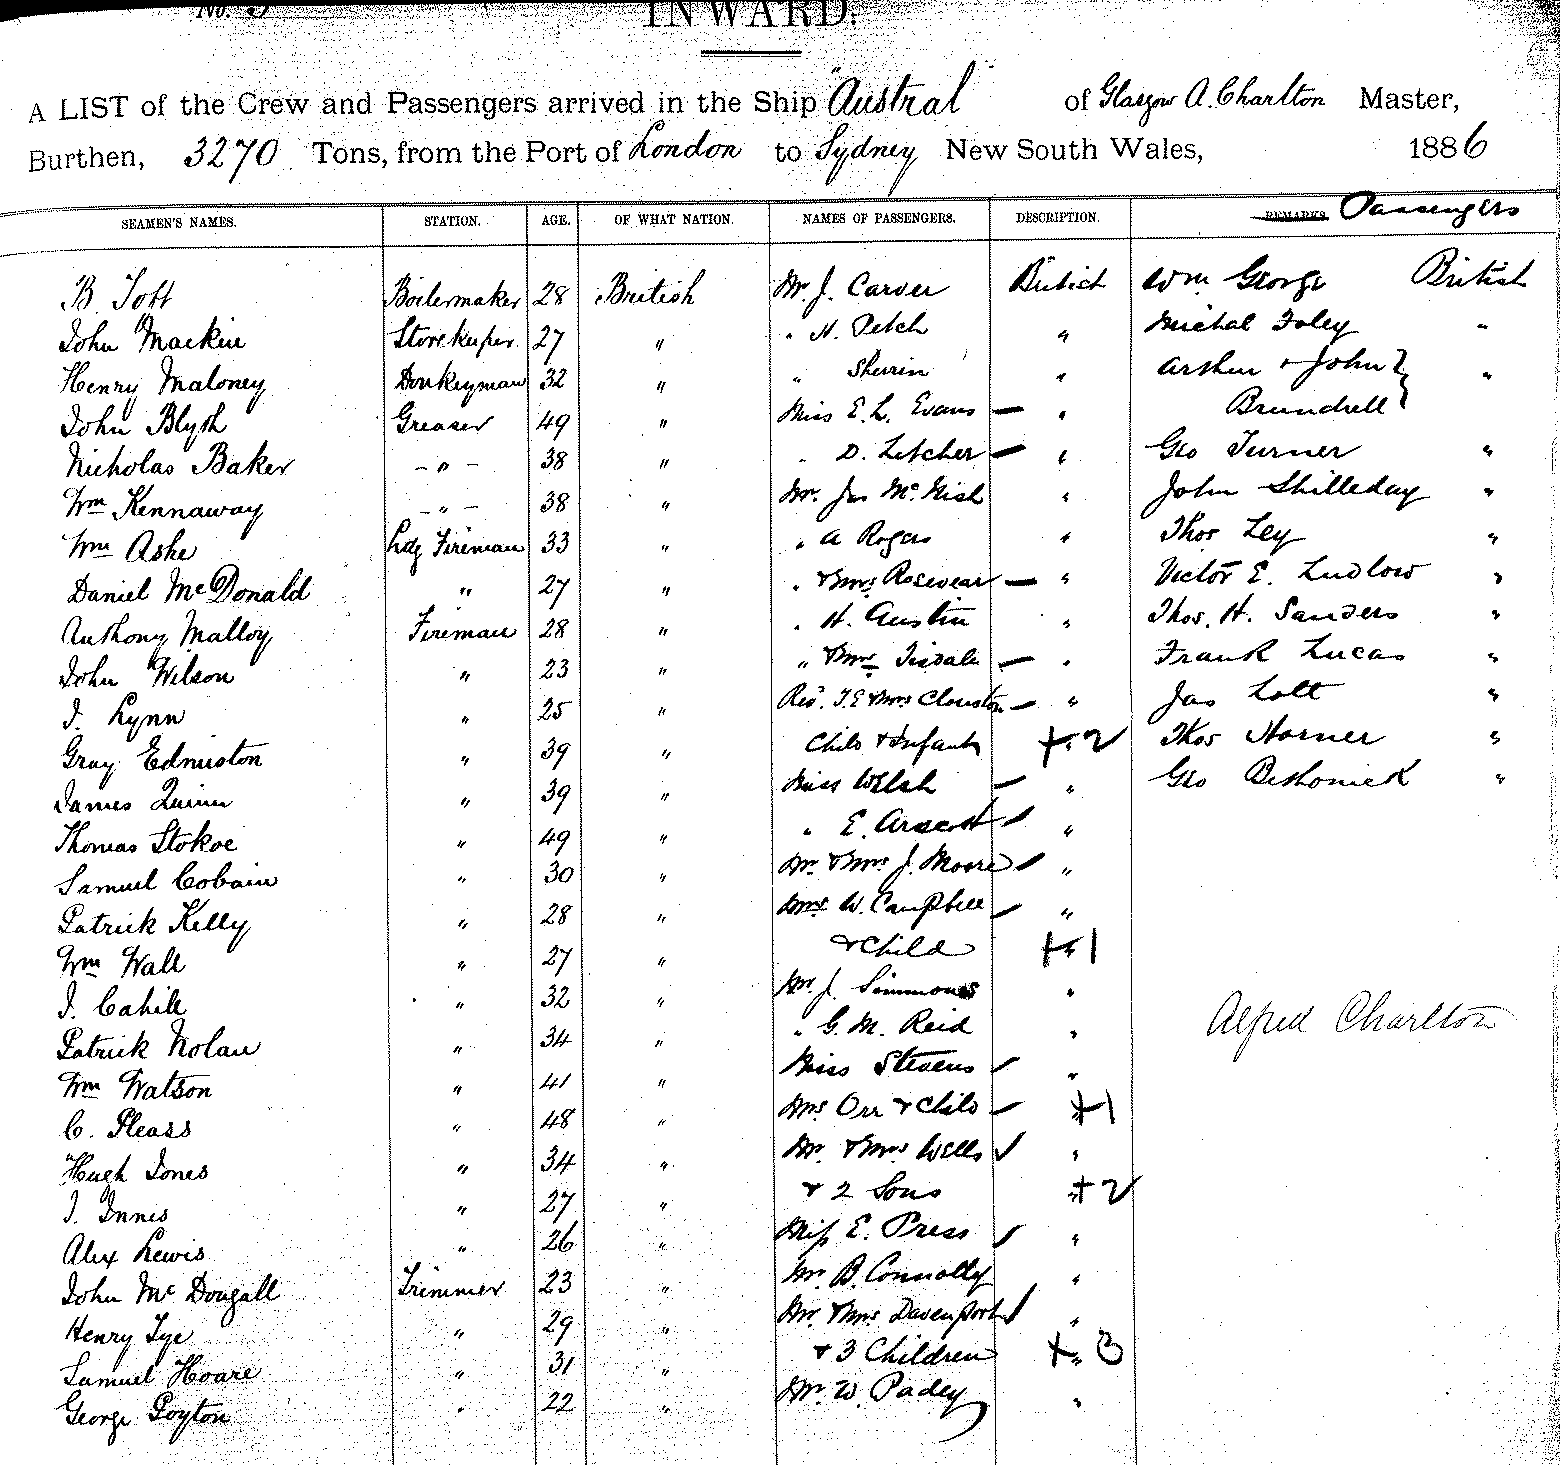 No. 3
INWARD.
A LIST of the Crew and Passengers arrived in the Ship "Austral of Glasgow A. Charlton Master,
Burthen, 3270 Tons, from the Port of London to Sydney New South Wales, 1886
SEAMEN'S NAMES. STATION. AGE. OF WHAT NATION. NAMES OF PASSENGERS. DESCRIPTION. REMARKS. Passengers
B. Toft Boilermaker 28 British Mr. J. Carver British Wm George British
John Mackie Storekeeper 27 " " H. Petch " Michal Foley "
Henry Maloney Donkeyman 32 " " Sherin " Arthur & John } "
John Blyth Greaser 49 " Miss E. L. Evans — " Brundrell
Nicholas Baker – " – 38 " " D. Letcher — " Geo Turner "
Wm Kennaway – " – 38 " Mr. Jas McNish " John Shilleday "
Wm Ashe Ldg Fireman 33 " " A Rogers " Thos Ley "
Daniel McDonald " 27 " " & Mrs Rosevear — " Victor E. Ludlow "
Anthony Malloy Fireman 28 " " H. Austin " Thos. H. Sanders "
John Wilson " 23 " " & Mrs Tisdale — " Frank Lucas "
J. Lynn " 25 " Rev. J. E & Mrs Clouston — " Jas Lott "
Gray Edmiston " 39 " Child & Infant + " 2 Thos Horner "
James Quinn " 39 " Miss Welsh — " Geo "
Thomas Stokoe " 49 " " E. Arscott "
Samuel Cobain " 30 " Mr & Mrs J. Moore "
Patrick Kelly " 28 " Mrs W. Campbell "
Wm Wall " 27 " & Child + " 1
J. Cahill " 32 " Mr. J. Simmons "
Patrick Nolan " 34 " " G. M. Reid " Alfred Charlton
Wm Watson " 41 " Miss Stevens "
C. Pleass " 48 " Mrs Orr & Child + " 1
Hugh Jones " 34 " Mr. & Mrs Wells "
J. Innes " 27 " & 2 Sons " + 2
Alex Lewis " 26 " Miss E. Press "
John McDougall Trimmer 23 " Mr. B. Connolly "
Henry Tye " 29 " Mr. & Mrs Davenport "
Samuel Hoare " 31 " & 3 Children + " 3
George Poyton " 22 " Mr. W. Padey "